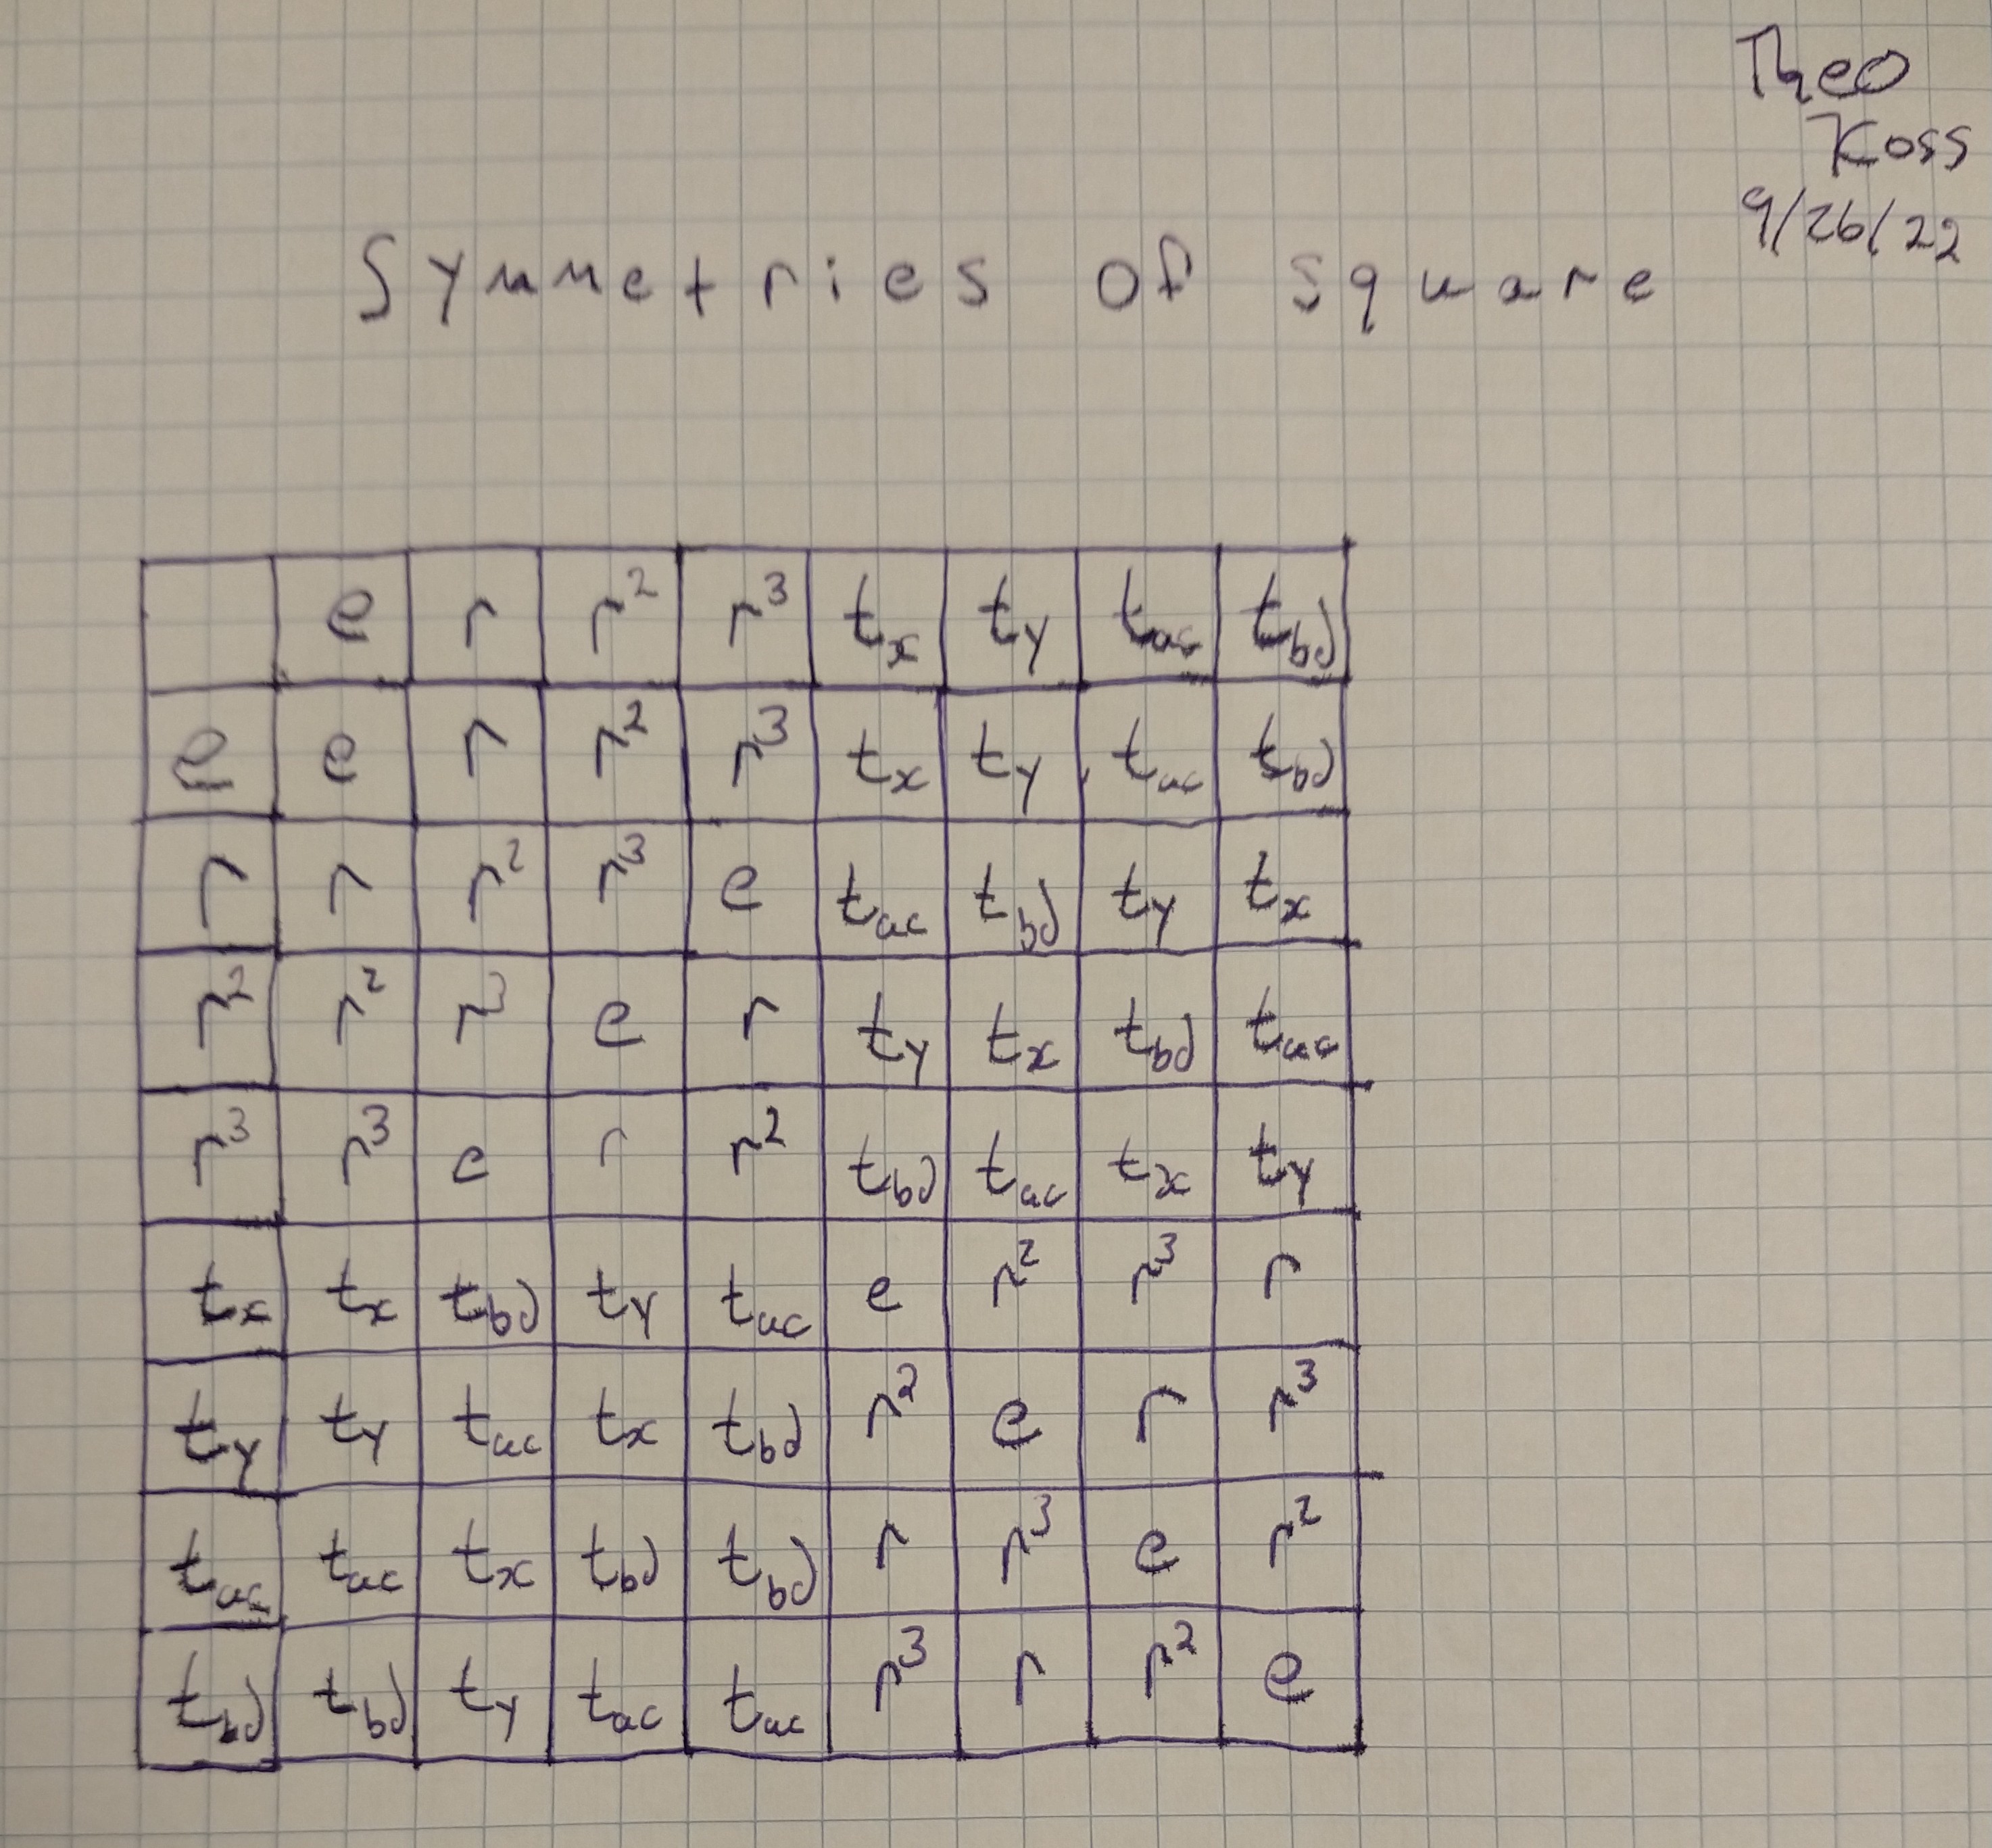 Theo
Koss
9/26/22
Symmetries of square
e r r² r³ t_x t_y t_ac t_bd
e e r r² r³ t_x t_y t_ac t_bd
r r r² r³ e t_ac t_bd t_y t_x
r² r² r³ e r t_y t_x t_bd t_ac
r³ r³ e r r² t_bd t_ac t_x t_y
t_x t_x t_bd t_y t_ac e r² r³ r
t_y t_y t_ac t_x t_bd r² e r r³
t_ac t_ac t_x t_bd t_bd r r³ e r²
t_bd t_bd t_y t_ac t_ac r³ r r² e